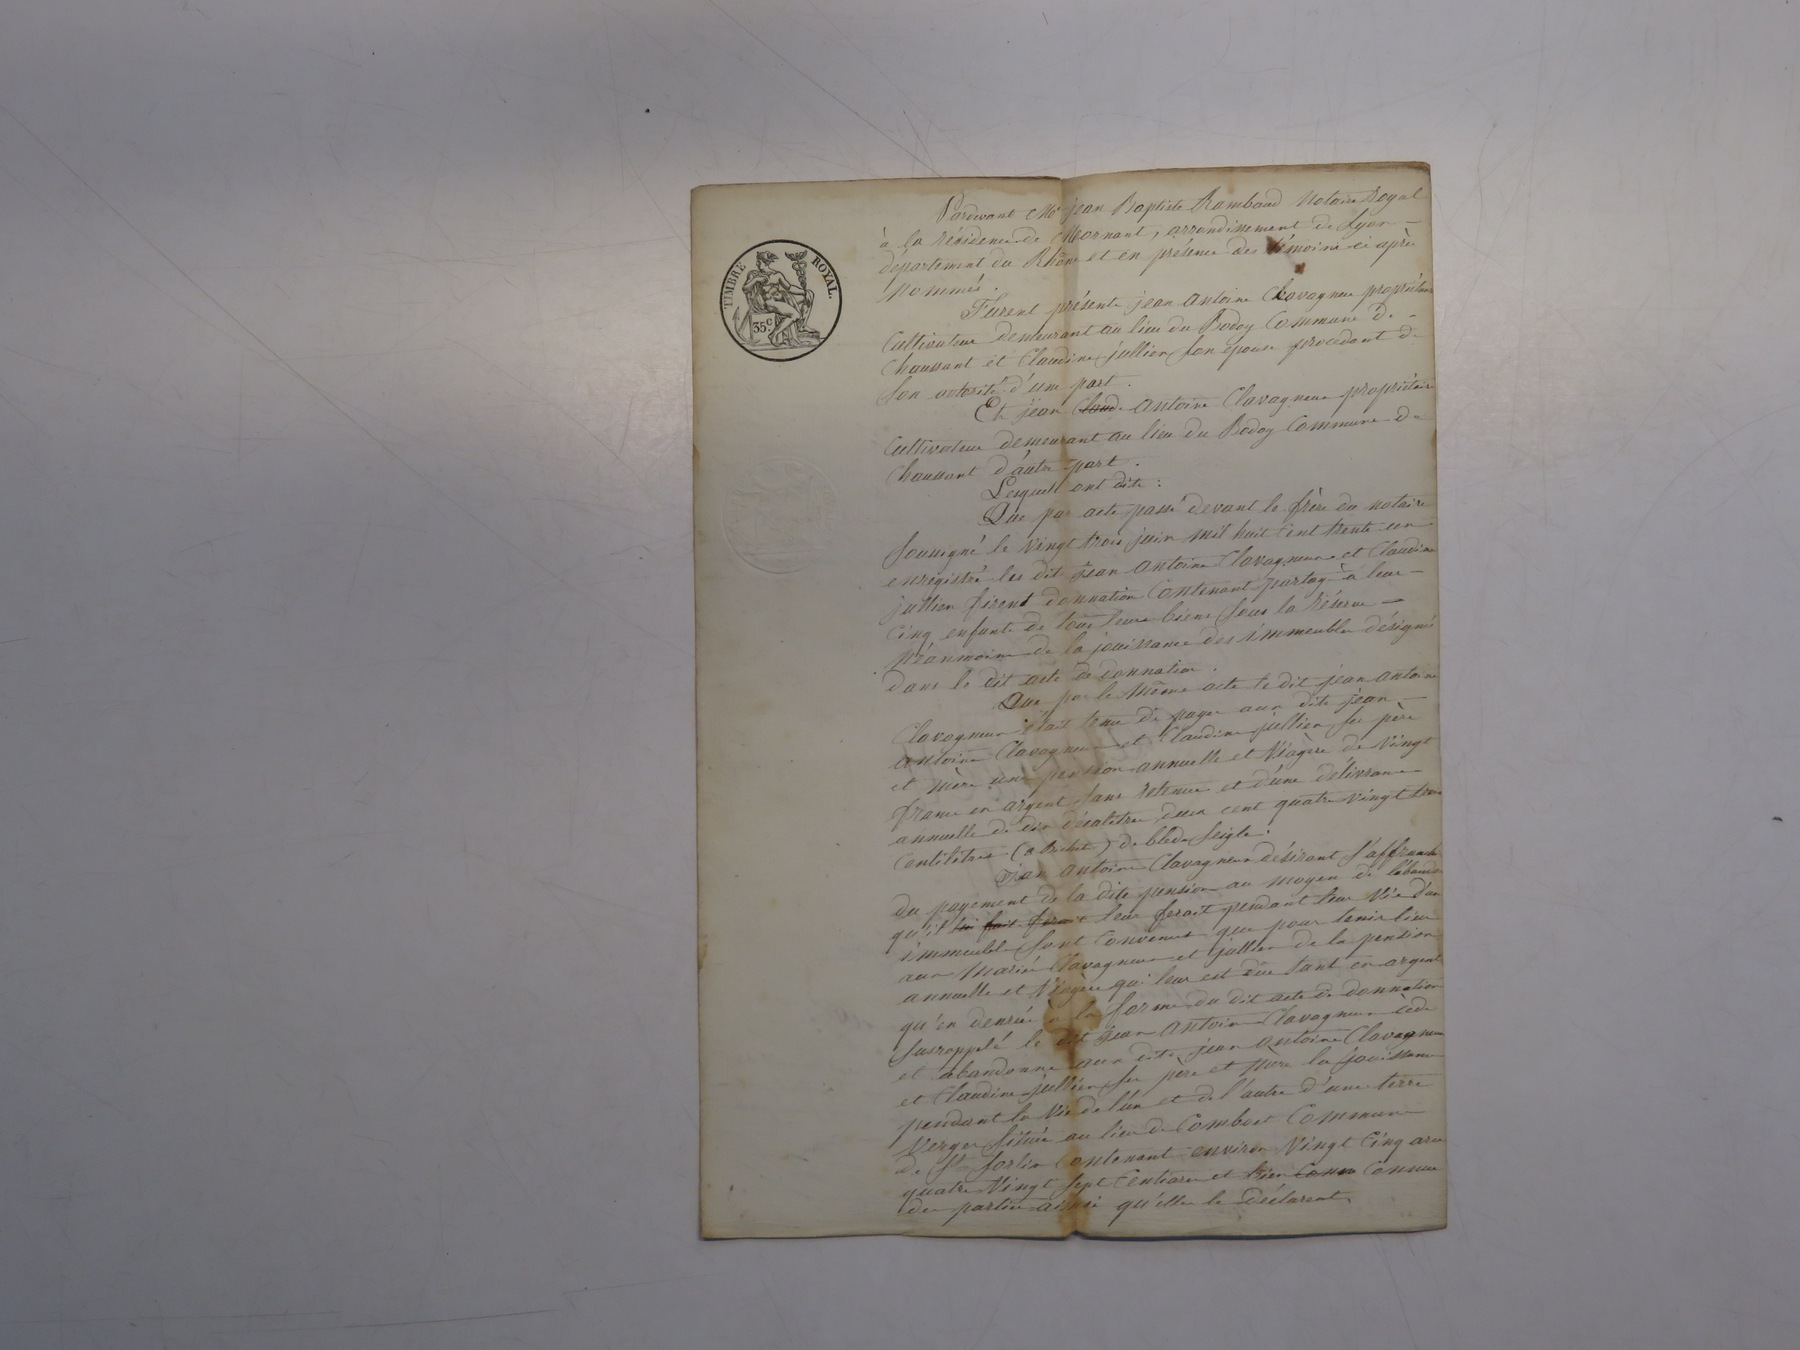 TIMBRE ROYAL.
35c
Pardevant Me jean Baptiste Rambaud Notaire Royal
à la résidence de Mornant, arrondissement de Lyon
département du Rhône et en présence des témoins ci après
nommés.
Furent présents jean Antoine Clavagneux propriétaire
Cultivateur demeurant au lieu du Bodoy Commune de
Chaussant et Claudine jullien son épouse procedant de
son autorité d'une part.
Et jean Claude Antoine Clavagneux propriétaire
Cultivateur demeurant au lieu du Bodoy Commune de
Chaussant d'autre part.
Lesquels ont dits :
Que par acte passé devant le frère du notaire
soussigné le vingt trois juin mil huit cent trente un
enregistré les dits jean Antoine Clavagneux et Claudine
jullien firent donnation Contenant partage à leurs
Cinq enfants de tous leurs biens sous la réserve
néanmoins de la jouissance des immeubles désignés
dans le dit acte de donnation.
Que par le même acte le dit jean Antoine
Clavagneux était tenu de payer aux dits jean
Antoine Clavagneux et Claudine jullien ses père
et mère une pension annuelle et viagère de vingt
francs en argent sans retenue et d'une délivrance
annuelle de dix décalitres deux cent quatre vingt
Centilitres de bled seigle.
jean Antoine Clavagneux désirant s'affranchir
du payement de la dite pension au moyen de l'abandon
qu'il lui fait leur ferait pendant leur vie d'un
immeuble sont Convenus que pour tenir lieu
aux Mariés Clavagneux et jullien de la pension
annuelle et viagère qui leur est due tant en argent
qu'en denrées à la forme du dit acte de donnation
susrappelé le dit jean Antoine Clavagneux cède
et abandonne aux dits jean Antoine Clavagneux
et Claudine jullien ses père et mère la jouissance
pendant la vie de l'un et de l'autre d'une terre
verger située au lieu de Combast Commune
de St Sorlin Contenant environ vingt Cinq ares
quatre vingt sept Centiares et bien Connu Connue
des parties ainsi qu'elles le déclarent